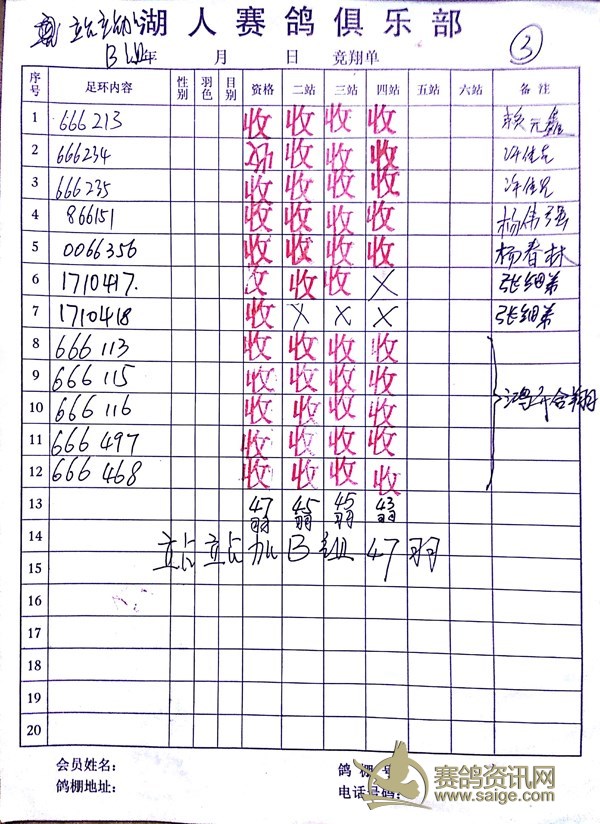 站站 湖人赛鸽俱乐部
B组 年 月 日 竞翔单 ③
序号 足环内容 性别 羽色 目别 资格 二站 三站 四站 五站 六站 备注
1 666213 收 收 收 收
2 666234 收 收 收 收 许佳兄
3 666235 收 收 收 收 许佳兄
4 866151 收 收 收 收 杨伟强
5 0066356 收 收 收 收 杨春林
6 1710417. 收 收 收 X 张细弟
7 1710418 收 X X X 张细弟
8 666 113 收 收 收 收
9 666 115 收 收 收 收
10 666 116 收 收 收 收 合翔
11 666 497 收 收 收 收
12 666 468 收 收 收 收
13 47羽 45羽 45羽 43羽
14 站站加B组47羽
15
16
17
18
19
20
会员姓名： 鸽棚号
鸽棚地址： 电话号码：
赛鸽资讯网
www.saige.com